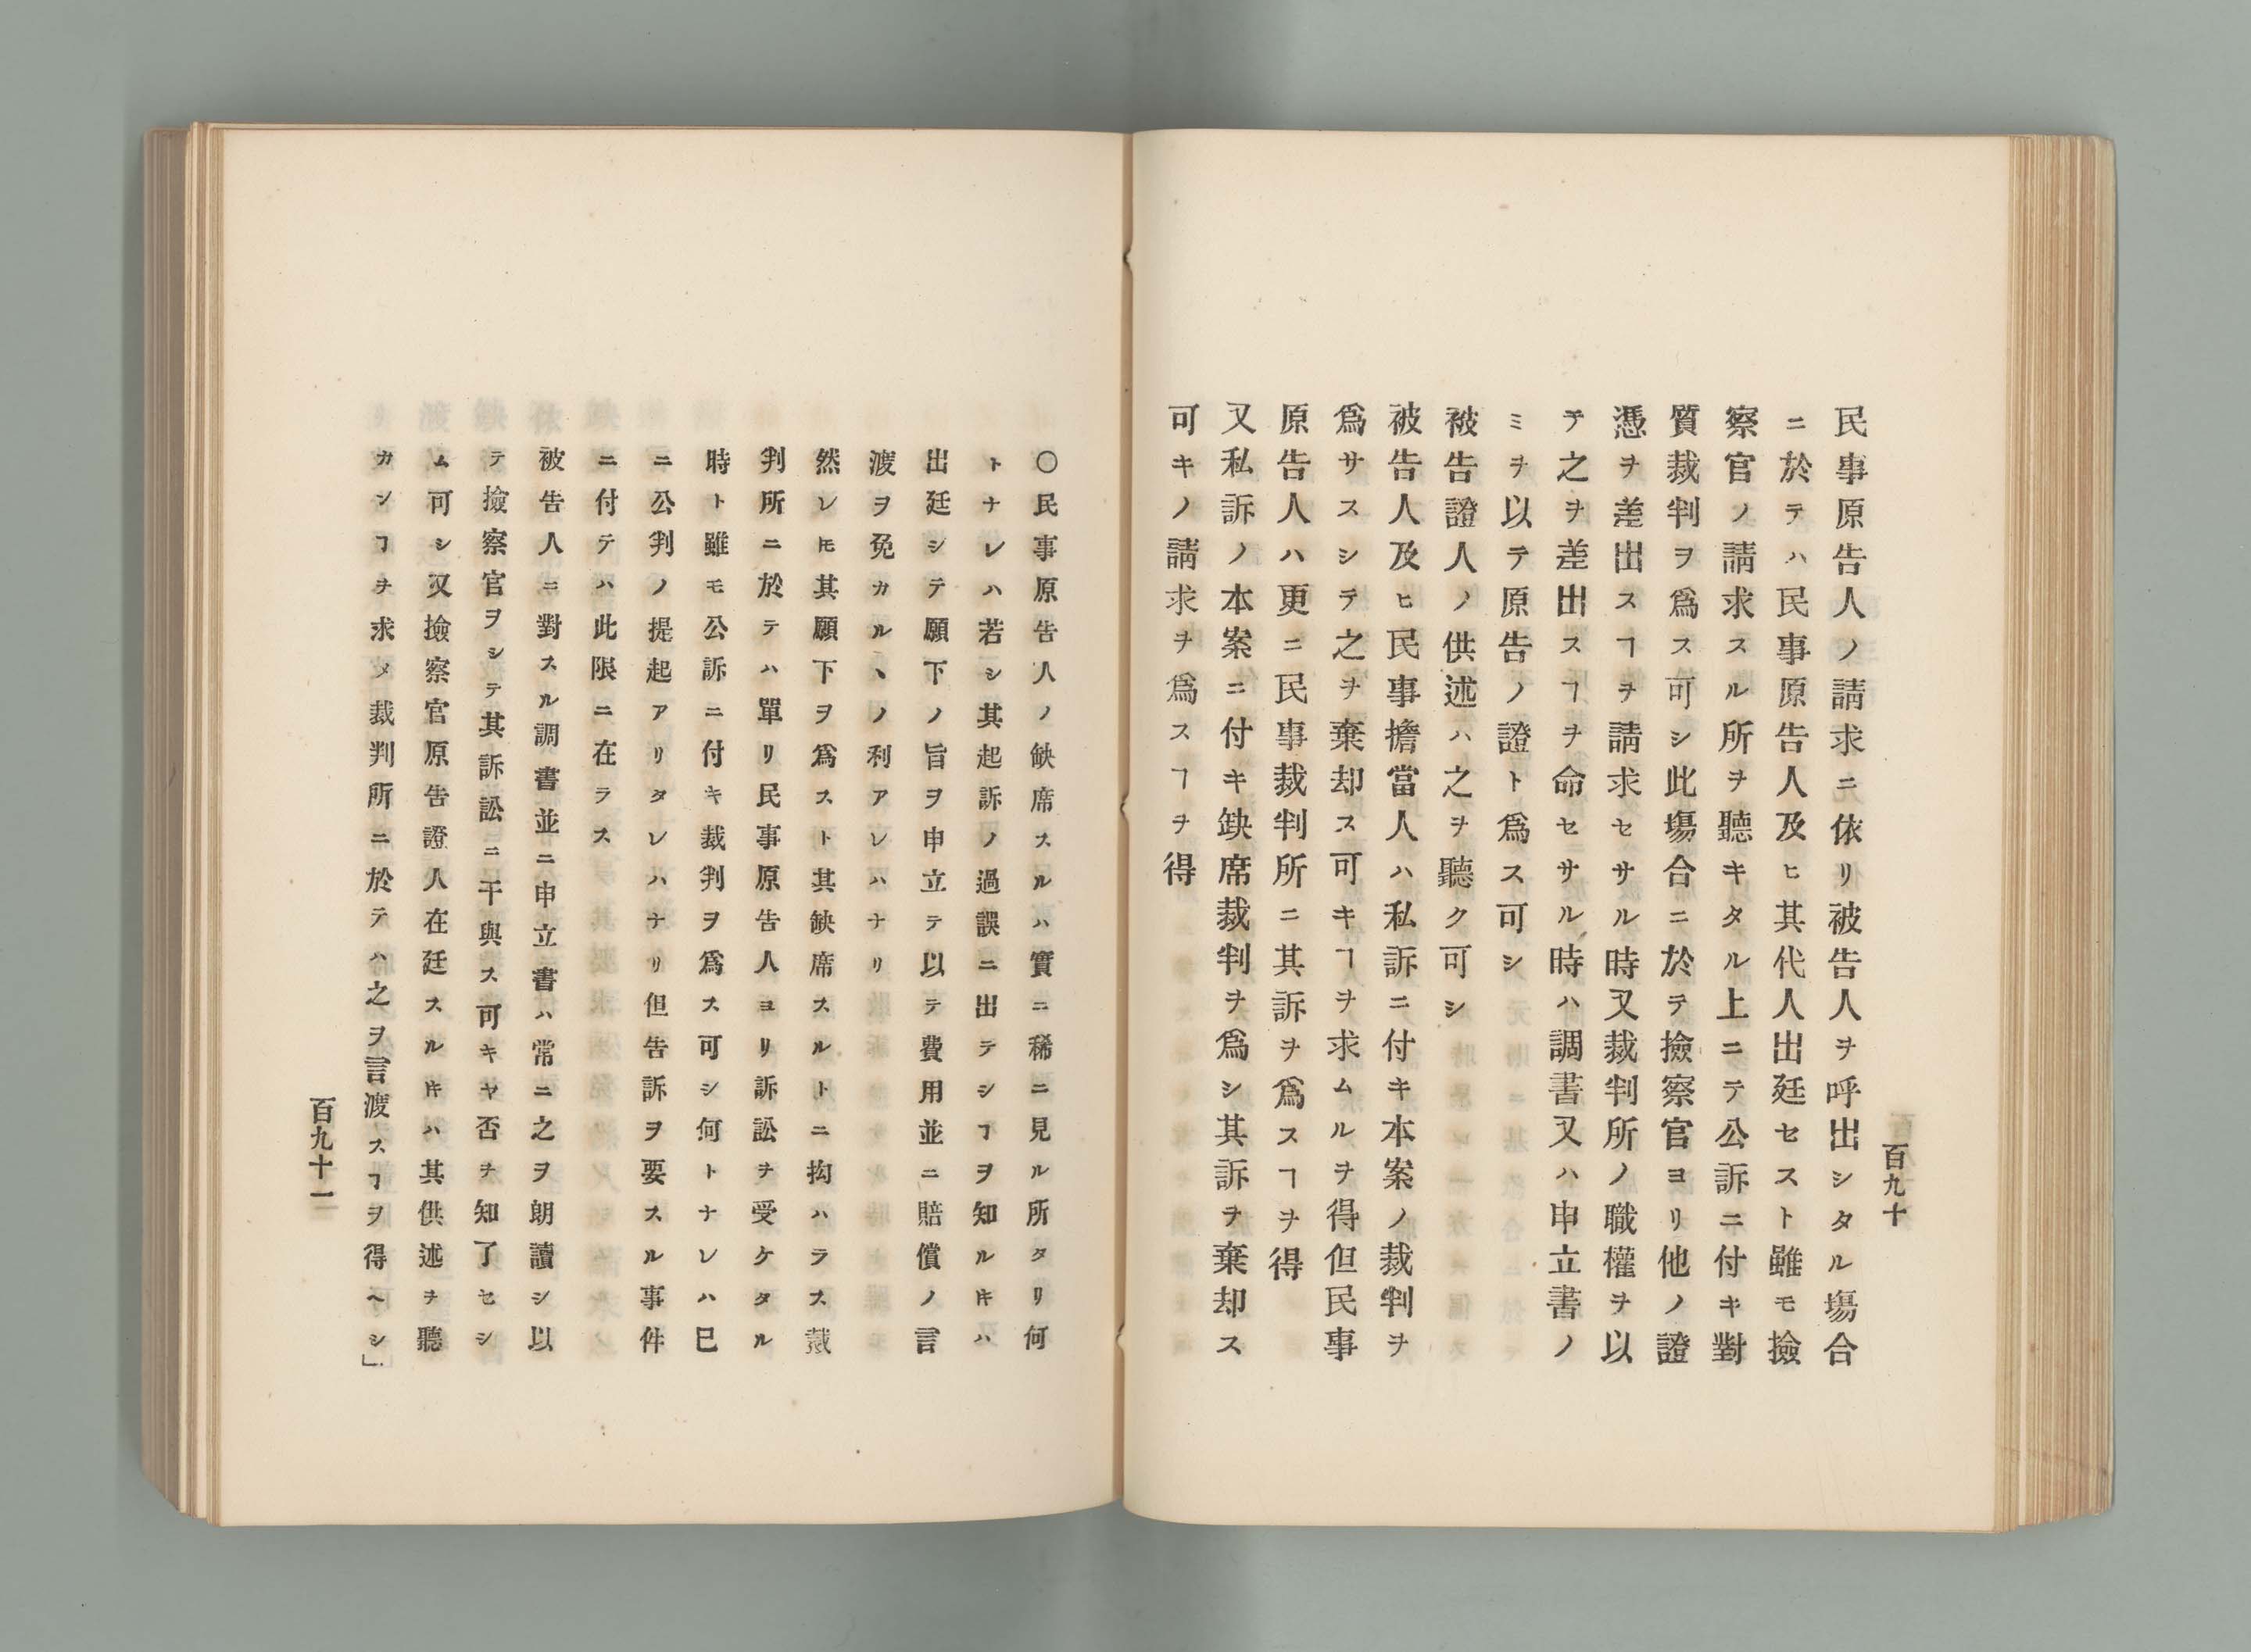 百九十
民事原告人ノ請求ニ依リ被告人ヲ呼出シタル塲合
ニ於テハ民事原告人及ヒ其代人出廷セスト雖モ撿
察官ノ請求スル所ヲ聽キタル上ニテ公訴ニ付キ對
質裁判ヲ爲ス可シ此塲合ニ於テ撿察官ヨリ他ノ證
憑ヲ差出スヿヲ請求セサル時又裁判所ノ職權ヲ以
テ之ヲ差出スヿヲ命セサル時ハ調書又ハ申立書ノ
ミヲ以テ原告ノ證ト爲ス可シ
被告證人ノ供述ハ之ヲ聽ク可シ
被告人及ヒ民事擔當人ハ私訴ニ付キ本案ノ裁判ヲ
爲サスシテ之ヲ棄却ス可キヿヲ求ムルヲ得但民事
原告人ハ更ニ民事裁判所ニ其訴ヲ爲スヿヲ得
又私訴ノ本案ニ付キ缺席裁判ヲ爲シ其訴ヲ棄却ス
可キノ請求ヲ爲スヿヲ得
〇民事原告人ノ缺席スルハ實ニ稀ニ見ル所タリ何
トナレハ若シ其起訴ノ過誤ニ出テシヿヲ知ルトキハ
出廷シテ願下ノ旨ヲ申立テ以テ費用並ニ賠償ノ言
渡ヲ免カルヽノ利アレハナリ
然レトモ其願下ヲ爲スト其缺席スルトニ拘ハラス裁
判所ニ於テハ單リ民事原告人ヨリ訴訟ヲ受ケタル
時ト雖モ公訴ニ付キ裁判ヲ爲ス可シ何トナレハ已
ニ公判ノ提起アリタレハナリ但告訴ヲ要スル事件
ニ付テハ此限ニ在ラス
被告人ニ對スル調書並ニ申立書ハ常ニ之ヲ朗讀シ以
テ撿察官ヲシテ其訴訟ニ干與ス可キヤ否ヲ知了セシ
ム可シ又撿察官原告證人在廷スルトキハ其供述ヲ聽
カンヿヲ求メ裁判所ニ於テハ之ヲ言渡スヿヲ得ヘシ」
百九十一